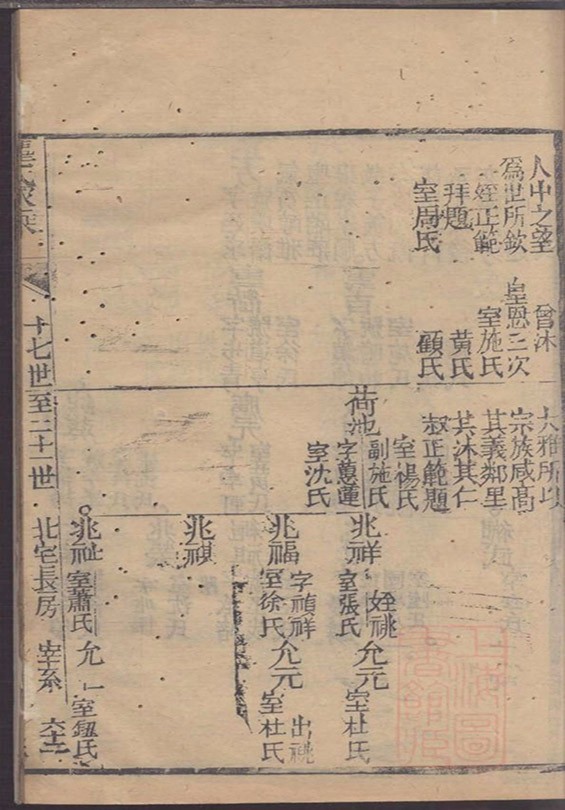 人中之望
為世所欽
姪正範
拜題
室周氏
曾沐
皇恩三次
室施氏
黃氏
顧氏
大雅所
宗族咸高
其義鄰里
共沐其仁
淑正範題
室楊氏
副施氏
荷池
字蕙蓮
室沈氏
兆祥
室張氏
姪祧
允元
室杜氏
兆福
字禎祥
室徐氏
允元
出祧
室杜氏
兆祺
兆祉
室蕭氏
允一
室鈕氏
十七世至二十一世
北宅長房
宰系
六十二
上海圖
書館藏